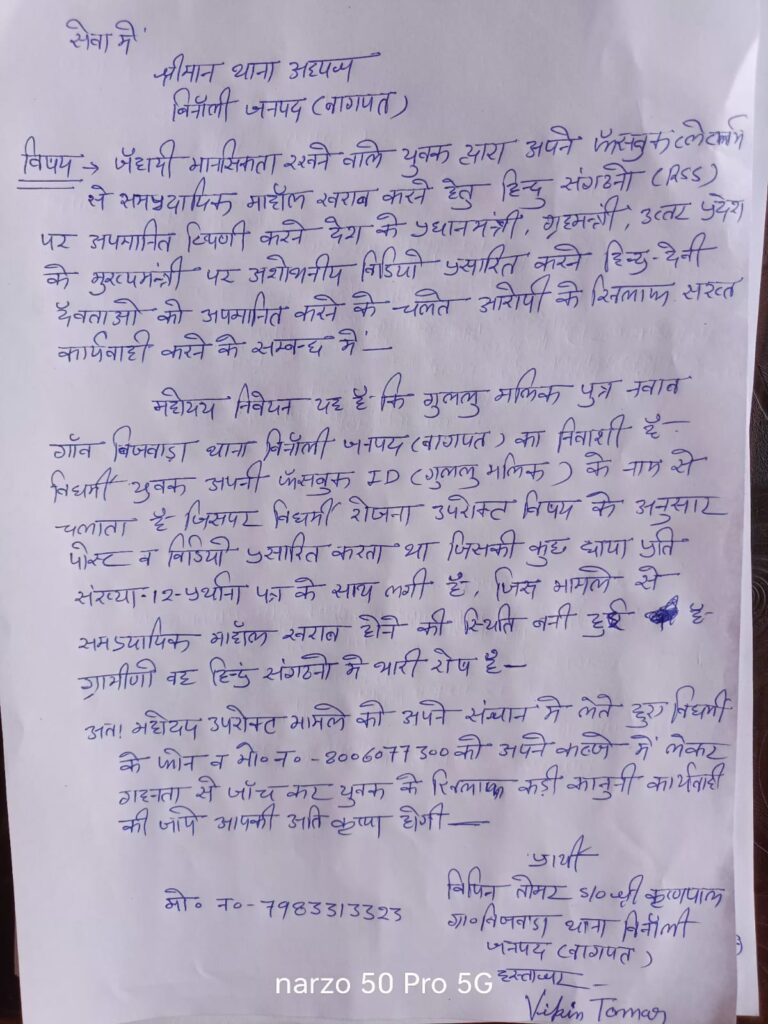 सेवा में
श्रीमान थाना अध्यक्ष
बिनौली जनपद (बागपत)
विषय → जेहादी मानसिकता रखने वाले युवक द्वारा अपने फेसबुक प्लेटफार्म
से समप्रदायिक माहौल खराब करने हेतु हिन्दु संगठनो (RSS)
पर अपमानित टिपणी करने देश के प्रधानमंत्री, गृहमन्त्री, उत्तर प्रदेश
के मुख्यमन्त्री पर अशोभनीय विडियो प्रसारित करने हिन्दु-देवी
देवताओ को अपमानित करने के चलते आरोपी के खिलाफ सख्त
कार्यवाही करने के सम्बन्ध में —
महोदय निवेदन यह है कि गुललु मलिक पुत्र नवाब
गाँव बिजवाड़ा थाना बिनौली जनपद (बागपत) का निवाशी है
विधर्मी युवक अपनी फेसबुक ID (गुललु मलिक) के नाम से
चलाता है जिसपर विधर्मी रोजना उपरोक्ट विषय के अनुसार
पोस्ट व विडियो प्रसारित करता था जिसकी कुछ छाया प्रति
संख्या-12-प्रर्थाना पत्र के साथ लगी है, जिस मामले से
माहौल खराब होने की स्थिति बनी हुई है-
ग्रामीणो वह हिन्दुं संगठनो मे भारी रोष है —
अतः महोदय उपरोक्ट मामले को अपने संज्ञान मे लेते हुए विधर्मी
के फोन व मो० न० -8006077300 को अपने कब्जे में लेकर
गहनता से जाँच कर युवक के खिलाफ कड़ी कानुनी कार्यवाही
की जाये आपकी अति कृप्पा होगी —
प्रार्थी
विपिन तोमर s/o श्री कृष्णपाल
ग्रा० बिजवाडा थाना बिनौली
जनपद (बागपत)
हस्ताक्षर
Vipin Tomar
मो० न० - 7983313323
narzo 50 Pro 5G